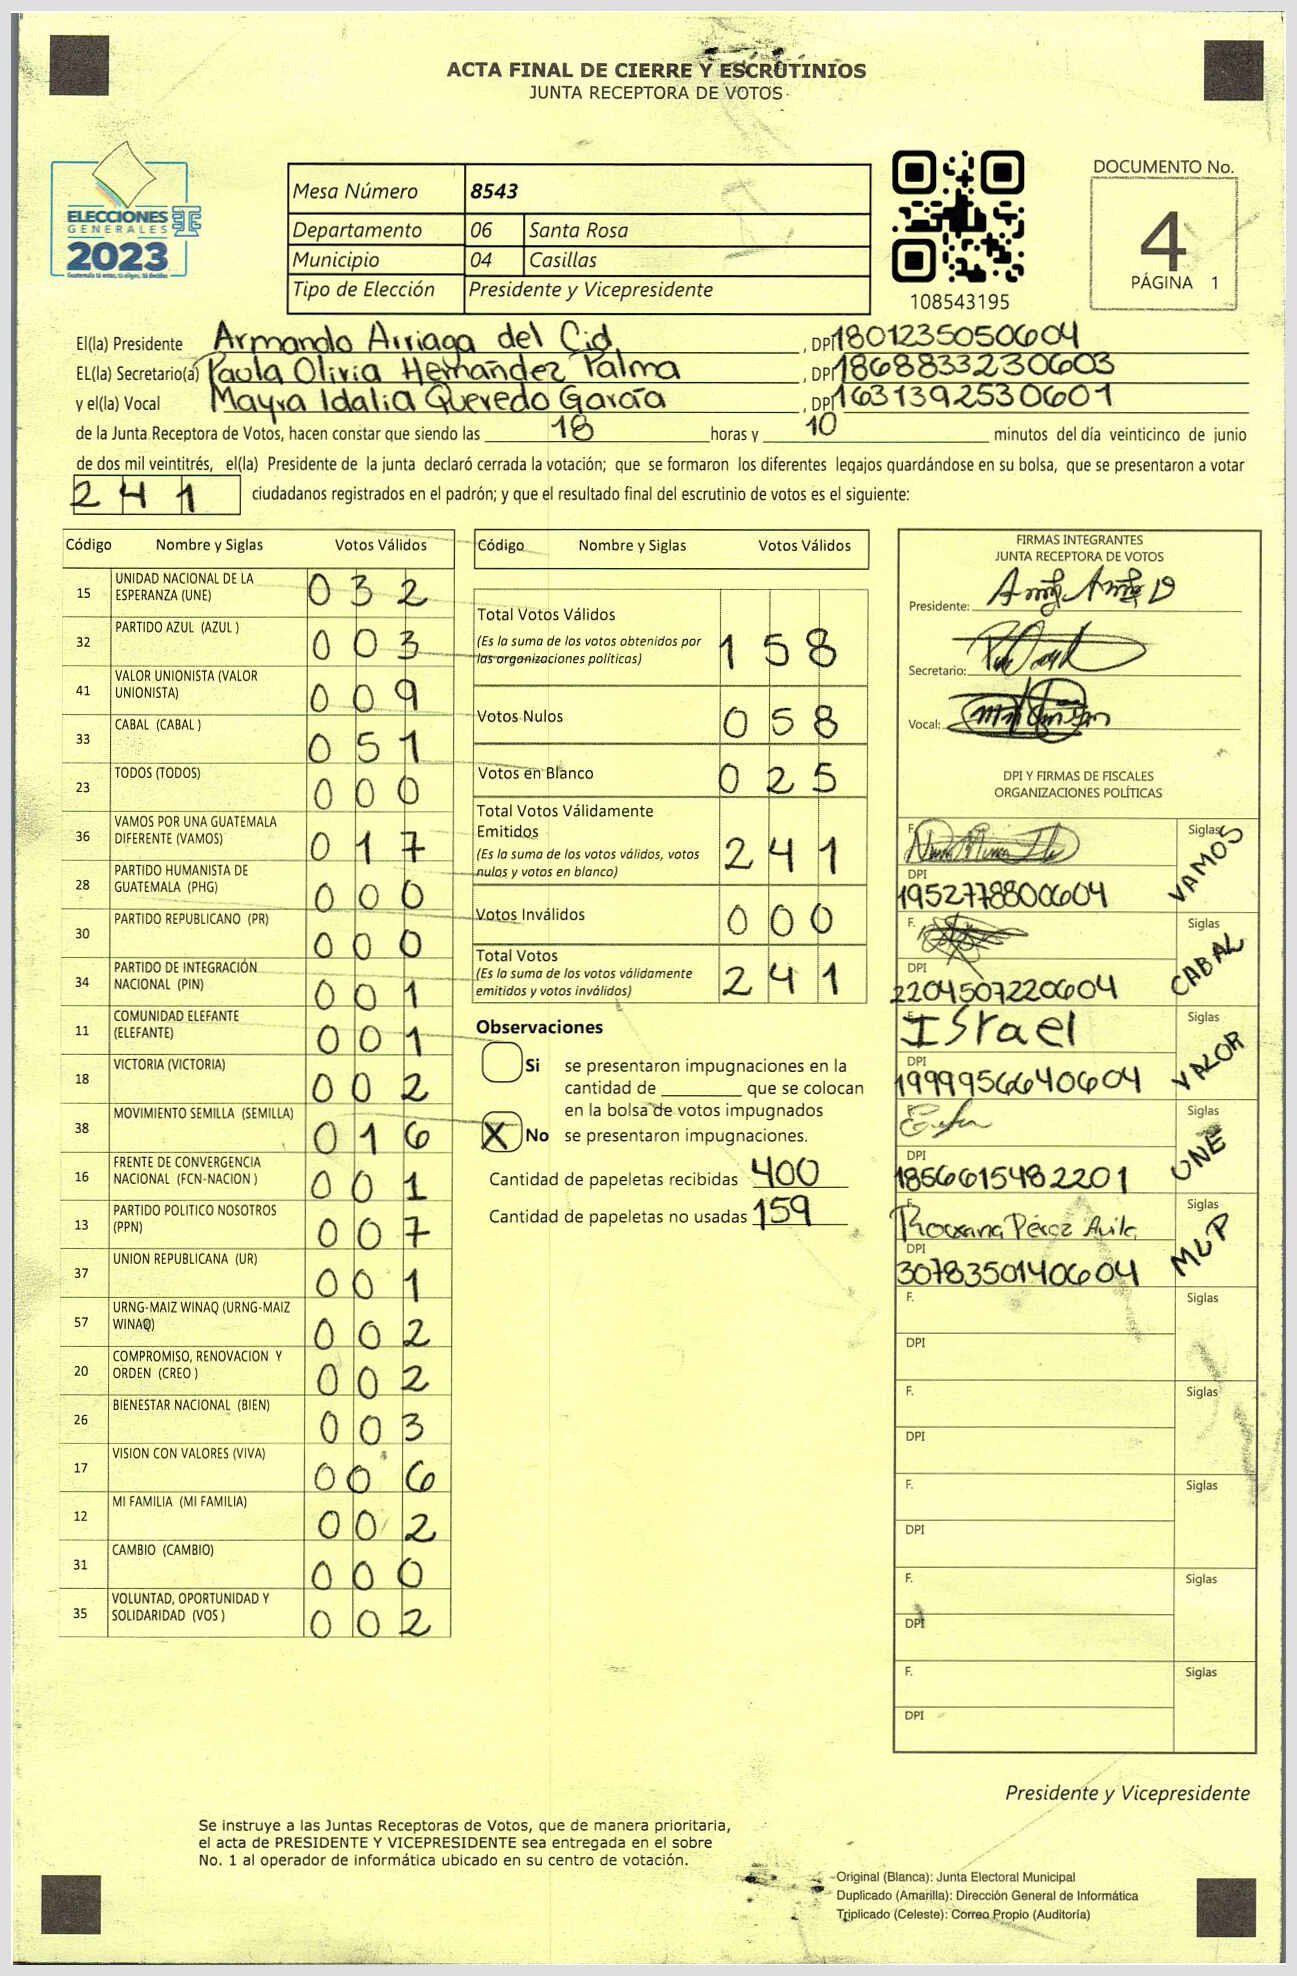 ACTA FINAL DE CIERRE Y ESCRUTINIOS
JUNTA RECEPTORA DE VOTOS
ELECCIONES
GENERALES
2023
Mesa Número 8543
Departamento 06 Santa Rosa
Municipio 04 Casillas
Tipo de Elección Presidente y Vicepresidente
108543195
DOCUMENTO No.
4
PÁGINA 1
El(la) Presidente Armando Arriaga del Cid, DPI 1801235050604
EL(la) Secretario(a) Paula Olivia Hernández Palma, DPI 1868833230603
y el(la) Vocal Mayra Idalia Quevedo García, DPI 1631392530601
de la Junta Receptora de Votos, hacen constar que siendo las 18 horas y 10 minutos del día veinticinco de junio
de dos mil veintitrés, el(la) Presidente de la junta declaró cerrada la votación; que se formaron los diferentes legajos guardándose en su bolsa, que se presentaron a votar
241 ciudadanos registrados en el padrón; y que el resultado final del escrutinio de votos es el siguiente:
Código Nombre y Siglas Votos Válidos
15 UNIDAD NACIONAL DE LA ESPERANZA (UNE) 032
32 PARTIDO AZUL (AZUL ) 003
41 VALOR UNIONISTA (VALOR UNIONISTA) 009
33 CABAL (CABAL ) 051
23 TODOS (TODOS) 000
36 VAMOS POR UNA GUATEMALA DIFERENTE (VAMOS) 017
28 PARTIDO HUMANISTA DE GUATEMALA (PHG) 000
30 PARTIDO REPUBLICANO (PR) 000
34 PARTIDO DE INTEGRACIÓN NACIONAL (PIN) 001
11 COMUNIDAD ELEFANTE (ELEFANTE) 001
18 VICTORIA (VICTORIA) 002
38 MOVIMIENTO SEMILLA (SEMILLA) 016
16 FRENTE DE CONVERGENCIA NACIONAL (FCN-NACION ) 001
13 PARTIDO POLITICO NOSOTROS (PPN) 007
37 UNION REPUBLICANA (UR) 001
57 URNG-MAIZ WINAQ (URNG-MAIZ WINAQ) 002
20 COMPROMISO, RENOVACION Y ORDEN (CREO ) 002
26 BIENESTAR NACIONAL (BIEN) 003
17 VISION CON VALORES (VIVA) 006
12 MI FAMILIA (MI FAMILIA) 002
31 CAMBIO (CAMBIO) 000
35 VOLUNTAD, OPORTUNIDAD Y SOLIDARIDAD (VOS ) 002
Código Nombre y Siglas Votos Válidos
Total Votos Válidos 158
(Es la suma de los votos obtenidos por
las organizaciones políticas)
Votos Nulos 058
Votos en Blanco 025
Total Votos Válidamente
Emitidos 241
(Es la suma de los votos válidos, votos
nulos y votos en blanco)
Votos Inválidos 000
Total Votos 241
(Es la suma de los votos válidamente
emitidos y votos inválidos)
Observaciones
Si se presentaron impugnaciones en la
cantidad de ________ que se colocan
en la bolsa de votos impugnados
X No se presentaron impugnaciones.
Cantidad de papeletas recibidas 400
Cantidad de papeletas no usadas 159
FIRMAS INTEGRANTES
JUNTA RECEPTORA DE VOTOS
Presidente:
Secretario:
Vocal:
DPI Y FIRMAS DE FISCALES
ORGANIZACIONES POLÍTICAS
F. Siglas VAMOS
DPI 1952778800604
F. Siglas CABAL
DPI 2204507220604
F. Israel Siglas VALOR
DPI 1999956640604
F. Siglas UNE
DPI 1856615482201
F. Roxana Pérez Avila Siglas MLP
DPI 3078350140604
F. Siglas
DPI
F. Siglas
DPI
F. Siglas
DPI
F. Siglas
DPI
F. Siglas
DPI
Presidente y Vicepresidente
Se instruye a las Juntas Receptoras de Votos, que de manera prioritaria,
el acta de PRESIDENTE Y VICEPRESIDENTE sea entregada en el sobre
No. 1 al operador de informática ubicado en su centro de votación.
Original (Blanca): Junta Electoral Municipal
Duplicado (Amarilla): Dirección General de Informática
Triplicado (Celeste): Correo Propio (Auditoría)